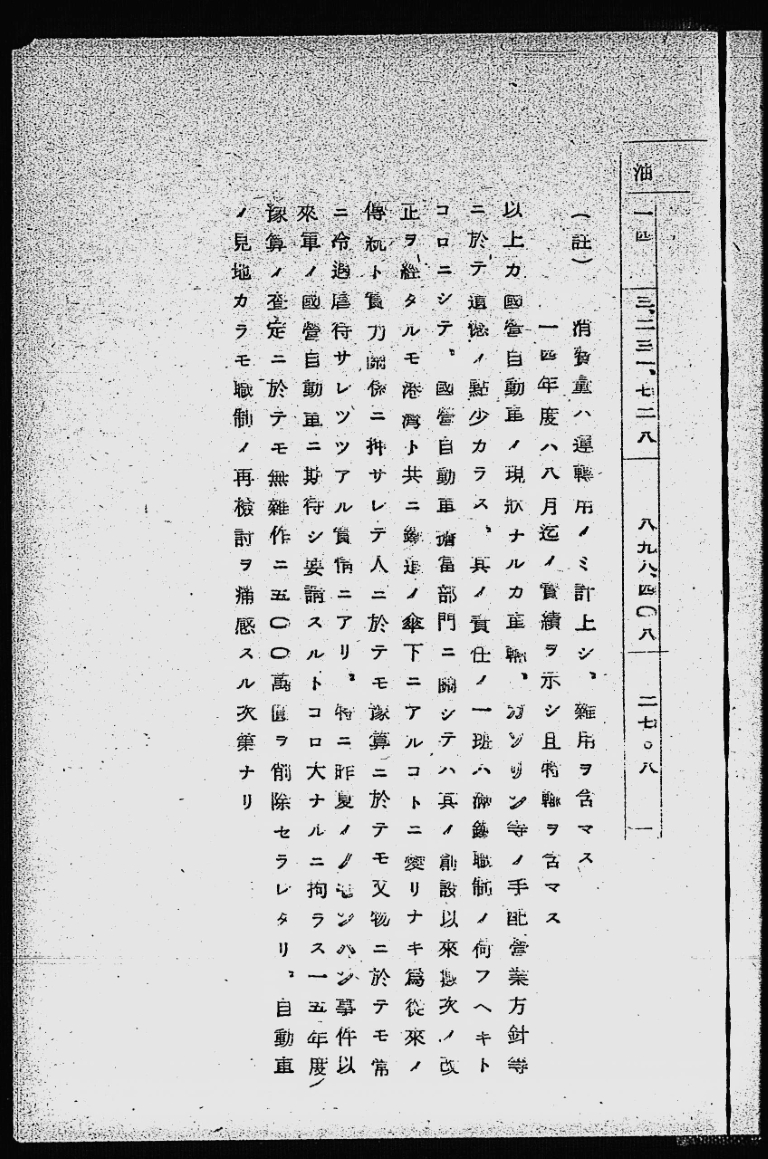 油 一四 三、二三一、七二八 八九八、四〇八 二七。八 一
(註) 消費量ハ運轉用ノミ計上シ、雜用ヲ含マス
一四年度ハ八月迄ノ實績ヲ示シ且特轉ヲ含マス
以上カ國營自動車ノ現狀ナルカ車輛、ガソリン等ノ手配營業方針等
ニ於テ遺憾ノ點少カラス、其ノ責任ノ一班ハ滿鐵職制ノ何フヘキト
コロニシテ、國營自動車擔當部門ニ關シテハ其ノ創設以來數次ノ改
正ヲ經タルモ港灣ト共ニ鐵道ノ傘下ニアルコトニ變リナキ爲從來ノ
傳統ト實力關係ニ押サレテ人ニ於テモ豫算ニ於テモ又物ニ於テモ常
ニ冷遇虐待サレツツアル實情ニアリ、特ニ昨夏ノノモンハン事件以
來軍ノ國營自動車ニ期待シ要請スルトコロ大ナルニ拘ラス一五年度
豫算ノ査定ニ於テモ無雜作ニ五〇〇萬圓ヲ削除セラレタリ、自動車
ノ見地カラモ職制ノ再檢討ヲ痛感スル次第ナリ